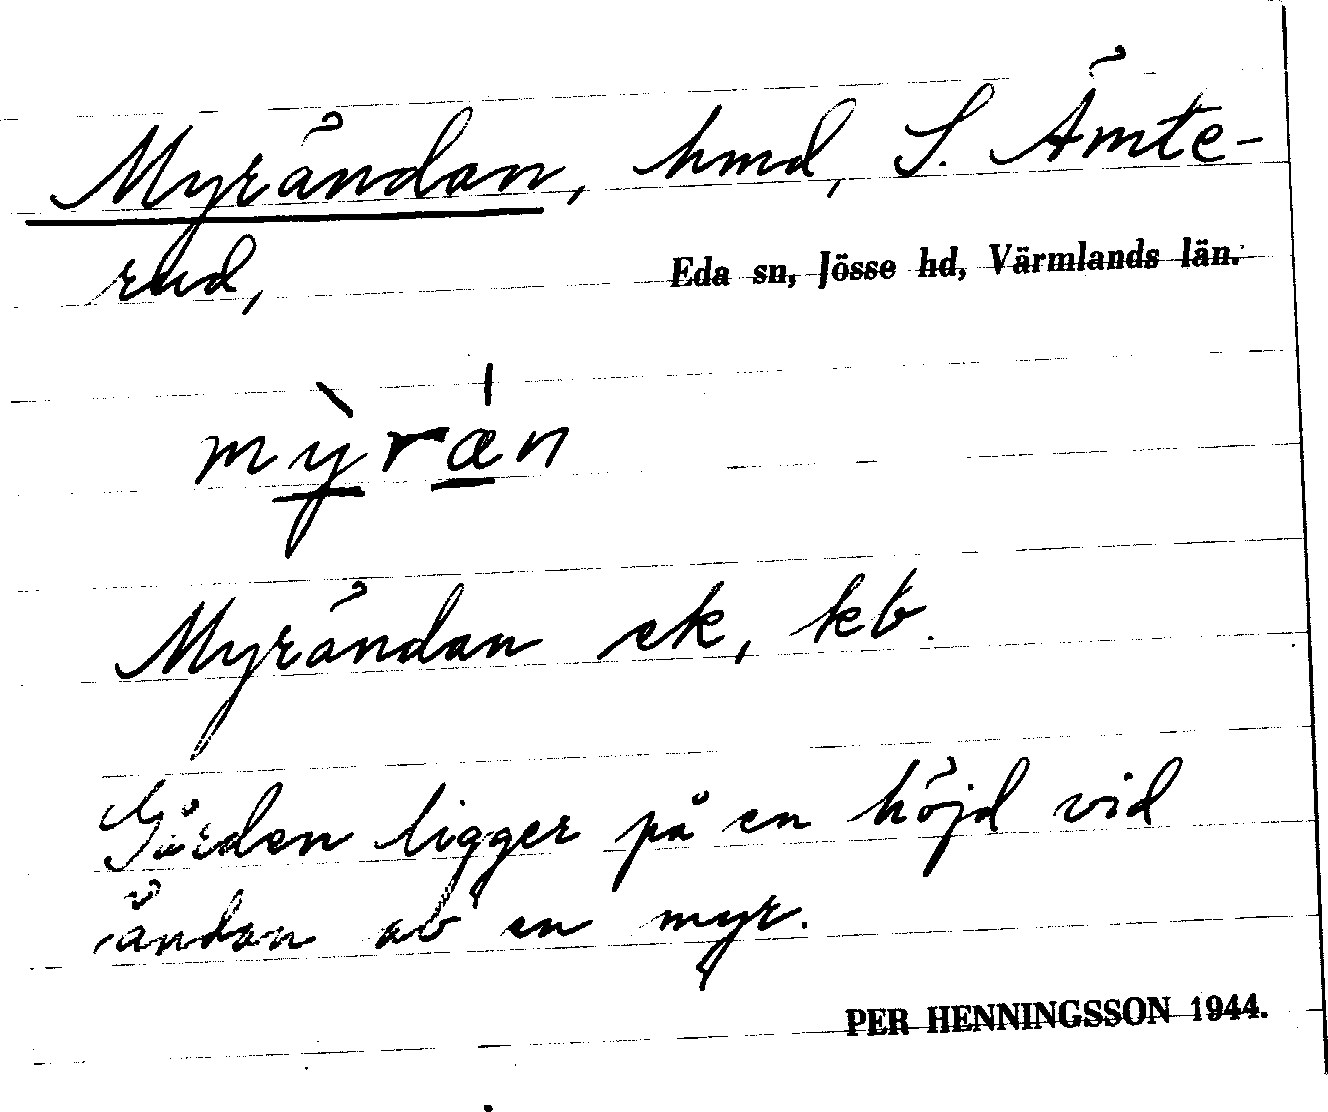 Myrändan, hmd, S. Ämte-
rud,
Eda sn, Jösse hd, Värmlands län.
mỳræ̍n
Myrändan ek, kb.
Gården ligger på en höjd vid
ändan av en myr.
PER HENNINGSSON 1944.